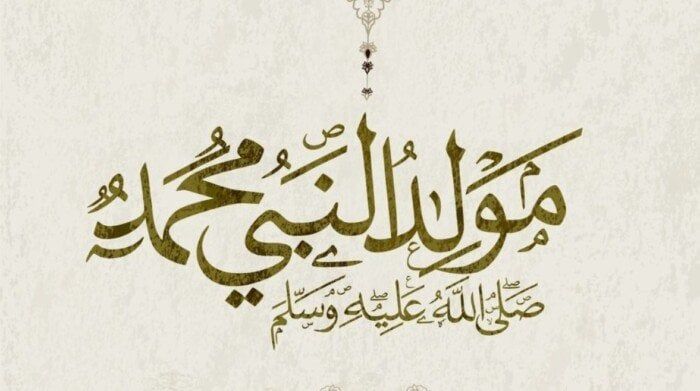 مَولِدُ النَّبِي مُحَمَّد
صَلَّى اللَّهُ عَلَيْهِ وَسَلَّم